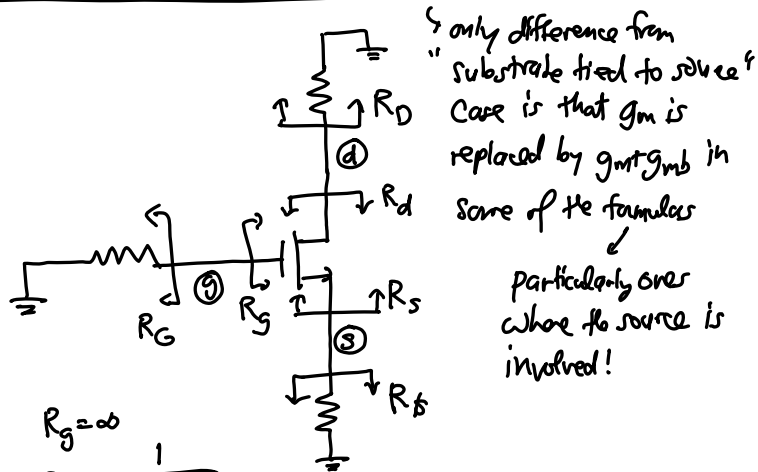 ↳ only difference from
"substrate tied to source"
case is that gm is
replaced by gm+gmb in
some of the formulas
particularly ones
where the source is
involved!
R_D
d
R_d
R_G
g
R_g
R_s
s
R_g=∞
1